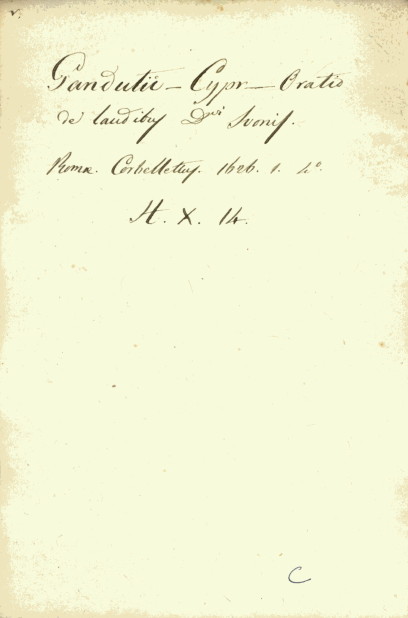 Gandutii – Cypr – Oratio
de laudibus Divi Ivonis.
Romae. Corbellettus. 1626. 1. 4°.
H. X. 14.
C